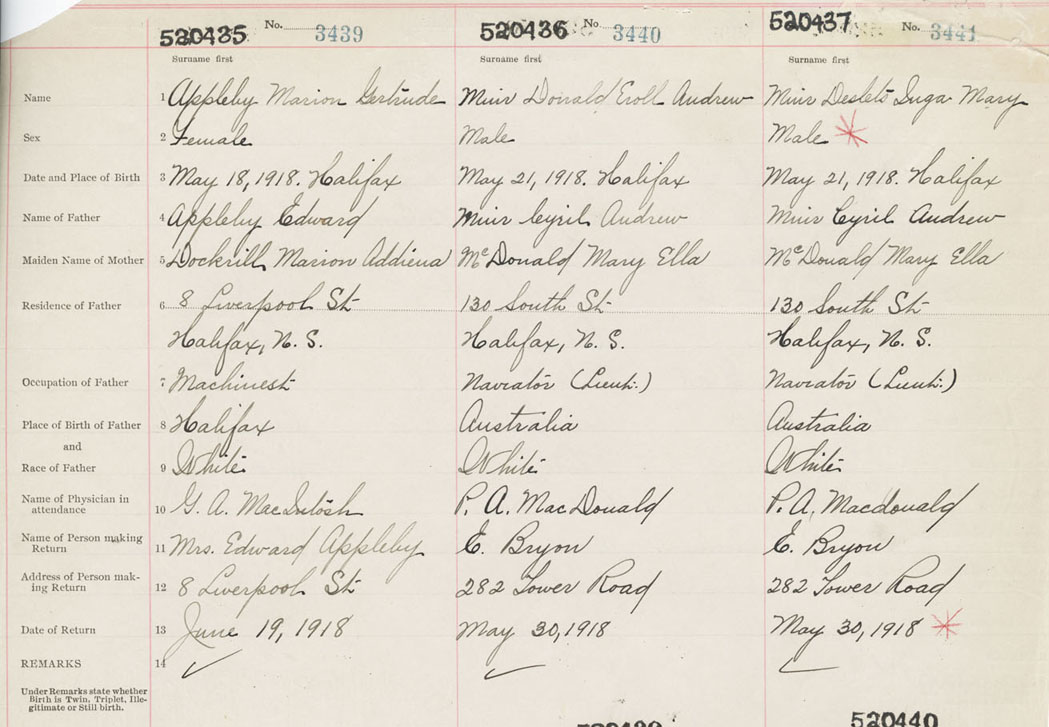 520435 No. 3439 520436 No. 3440 520437 No. 3441
Surname first Surname first Surname first
Name 1 Appleby Marion Gertrude Muir Donald Eroll Andrew Muir Inga Mary
Sex 2 Female Male Male *
Date and Place of Birth 3 May 18, 1918. Halifax May 21, 1918. Halifax May 21, 1918. Halifax
Name of Father 4 Appleby Edward Muir Cyril Andrew Muir Cyril Andrew
Maiden Name of Mother 5 Dockrill Marion Addiena McDonald Mary Ella McDonald Mary Ella
Residence of Father 6 8 Liverpool St 130 South St 130 South St
Halifax, N. S. Halifax, N. S. Halifax, N. S.
Occupation of Father 7 Machinest Naviator (Lieut.) Naviator (Lieut.)
Place of Birth of Father 8 Halifax Australia Australia
and
Race of Father 9 White White White
Name of Physician in
attendance 10 G. A. MacIntosh P. A. MacDonald P. A. Macdonald
Name of Person making
Return 11 Mrs. Edward Appleby E. Bryon E. Bryon
Address of Person mak-
ing Return 12 8 Liverpool St 282 Tower Road 282 Tower Road
Date of Return 13 June 19, 1918 May 30, 1918 May 30, 1918 *
REMARKS 14 ✓ ✓ ✓
Under Remarks state whether
Birth is Twin, Triplet, Ille-
gitimate or Still birth.
520440